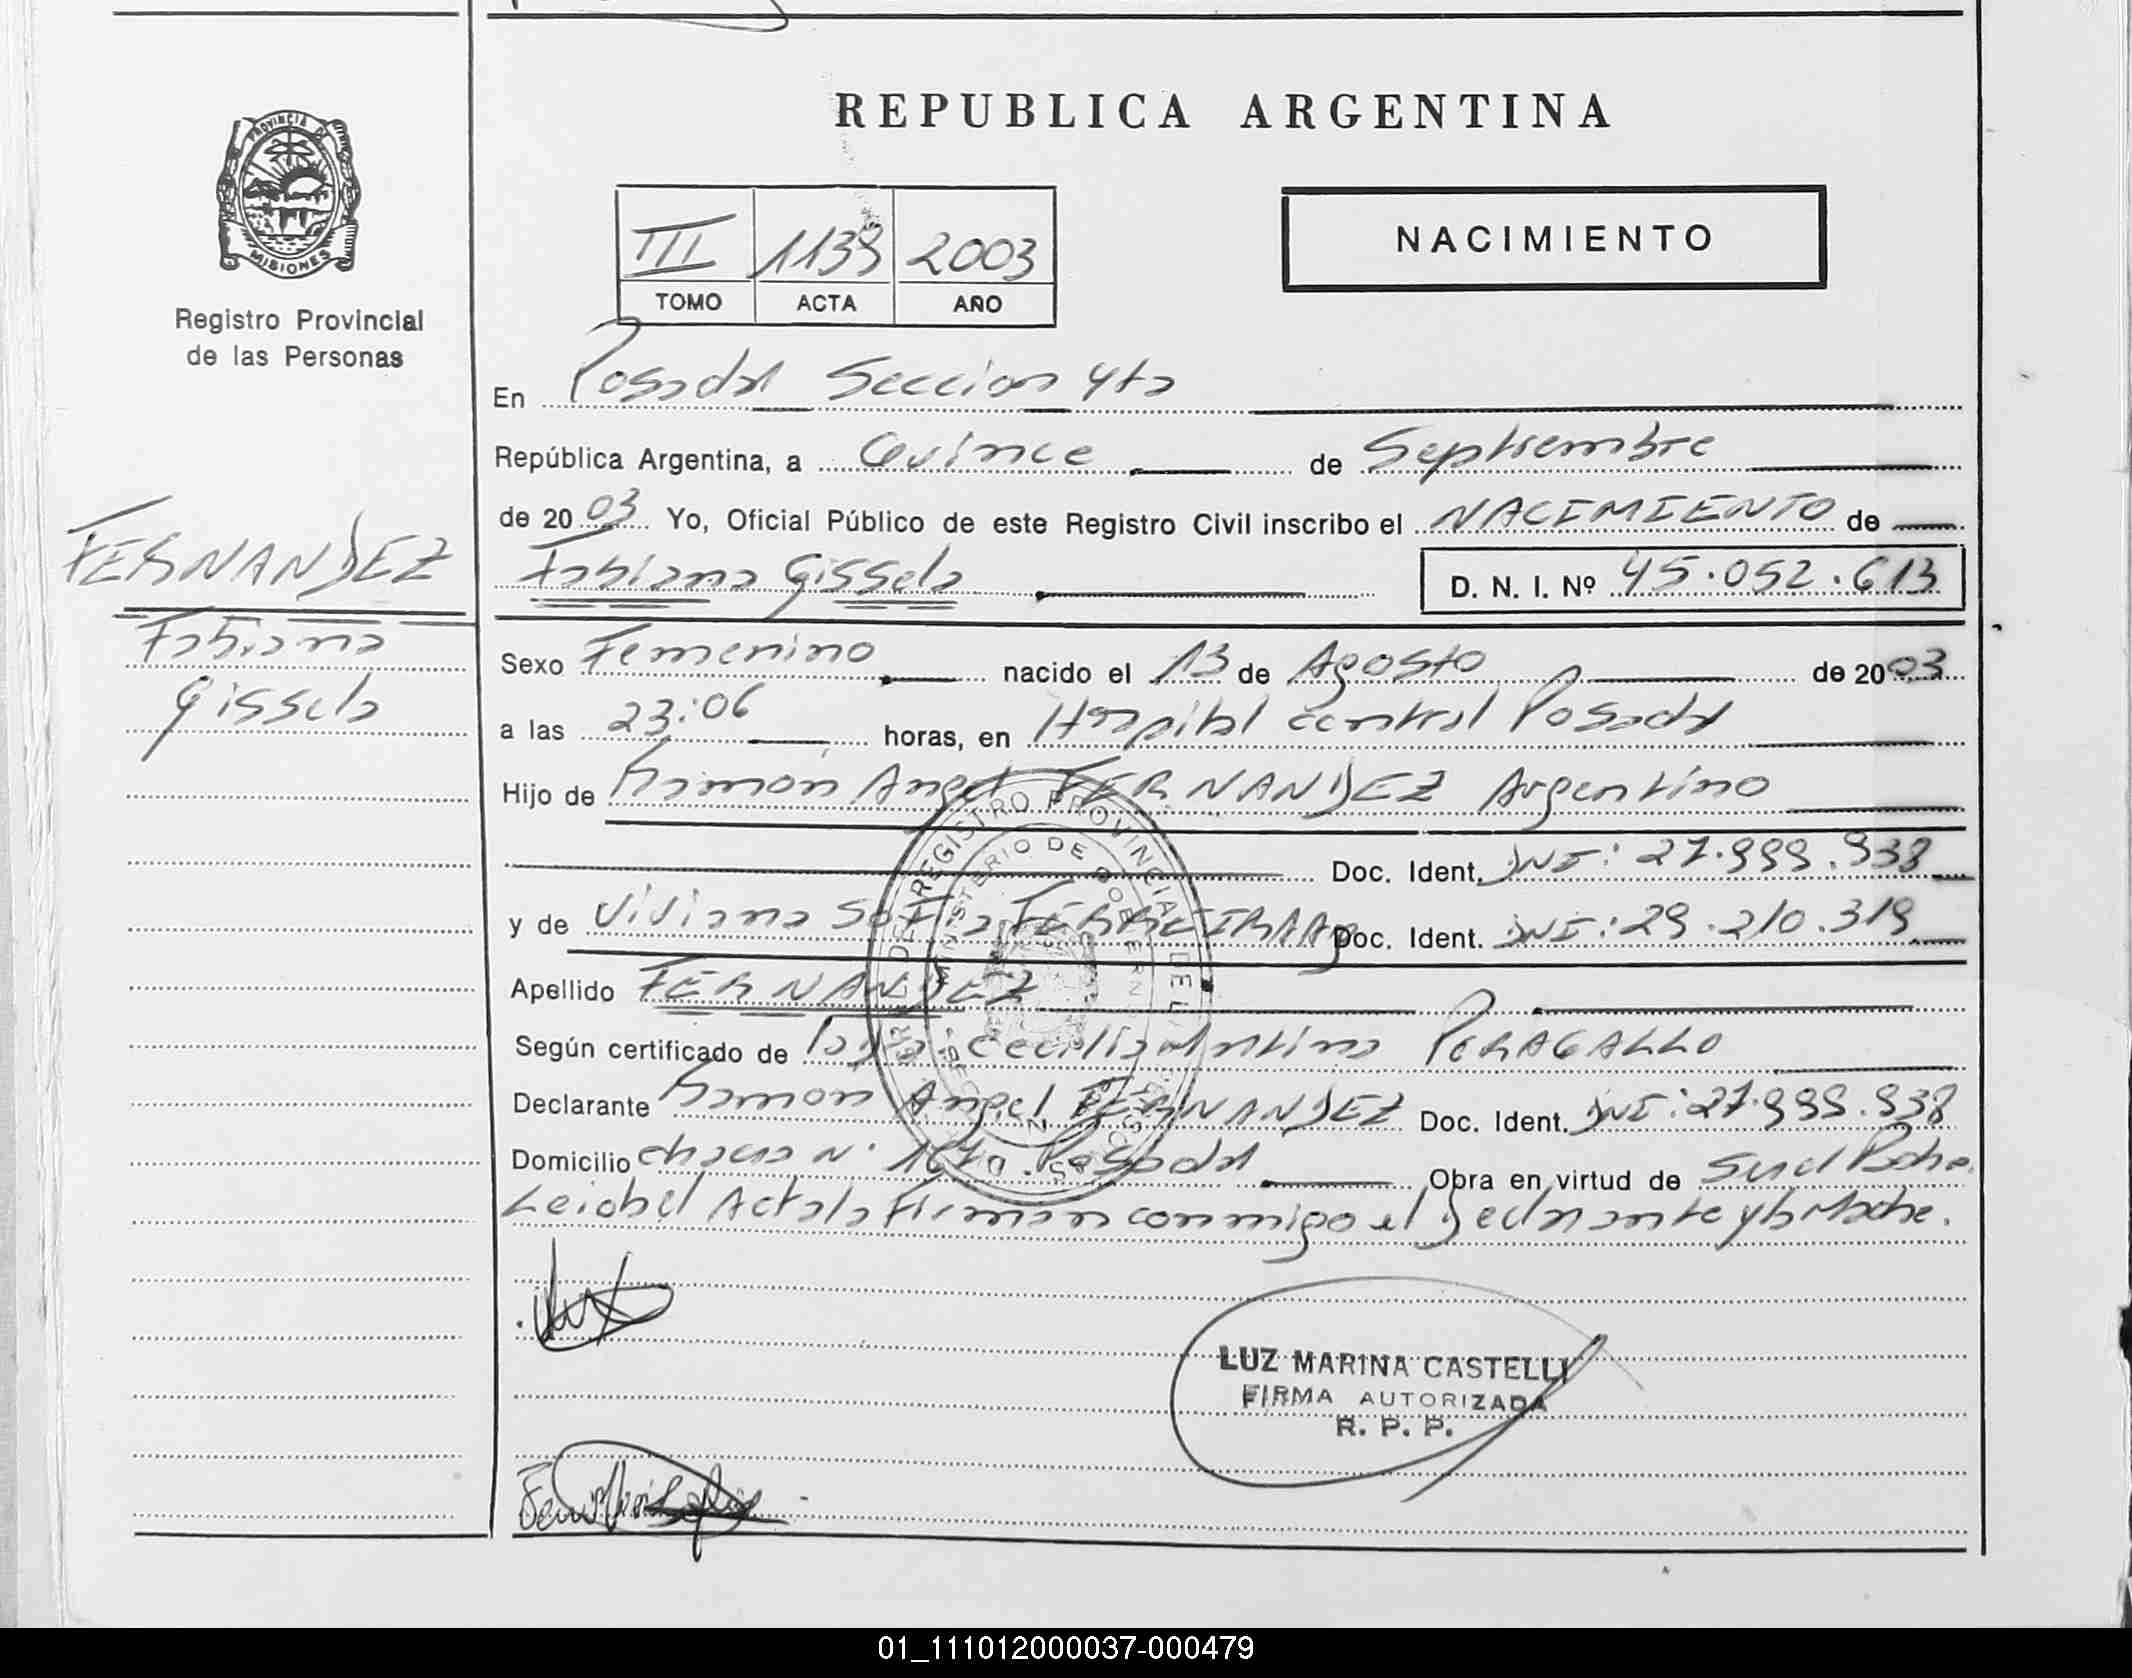 REPUBLICA ARGENTINA
PROVINCIA DE
MISIONES
Registro Provincial
de las Personas
III 1139 2003
TOMO ACTA AÑO
NACIMIENTO
En Posadas Seccion 4ta
República Argentina, a Quince de Septiembre
de 2003 Yo, Oficial Público de este Registro Civil inscribo el NACIMIENTO de
Fabiana Gissela D. N. I. Nº 45.052.613
FERNANDEZ
Fabiana
Gissela
Sexo Femenino nacido el 13 de Agosto de 2003
a las 23:06 horas, en Hospital central Posadas
Hijo de Ramón Angel FERNANDEZ Argentino
Doc. Ident. DNI: 27.999.938
y de Viviana Sofia Doc. Ident. DNI: 29.210.319
Apellido FERNANDEZ
Según certificado de PERAGALLO
Declarante Ramon Angel FERNANDEZ Doc. Ident. DNI: 27.999.938
Domicilio chacra N. Posadas Obra en virtud de
Leida el Acta la Firman conmigo el Declarante y la Madre.
LUZ MARINA CASTELLI
FIRMA AUTORIZADA
R. P. P.
01_111012000037-000479